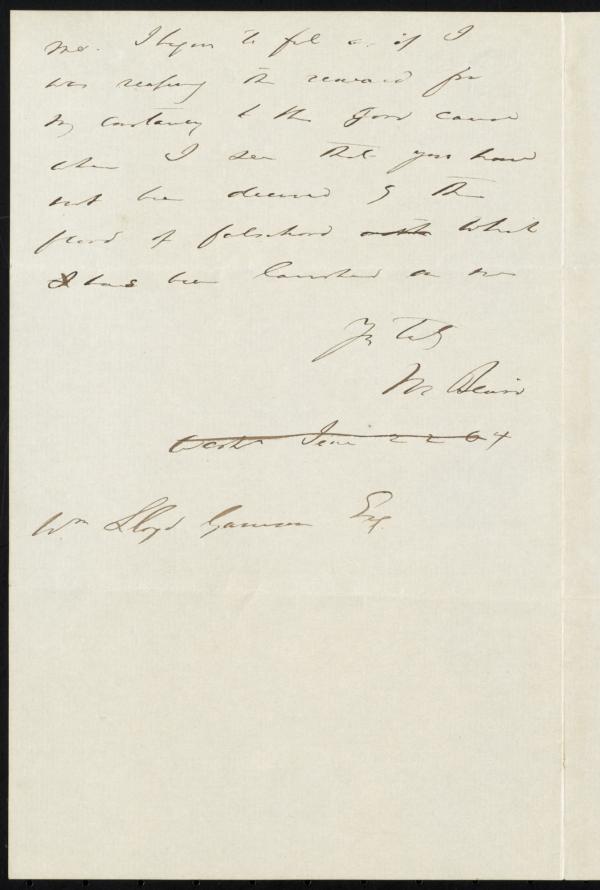 me. I begin to feel as if I
was reaping the reward for
my constancy to the good cause
when I see that you have
not been deceived by the
flood of falsehood which
has been launched on me
Yrs Tly
M Blair
Wash June 22 64
Wm Lloyd Garrison Esq.